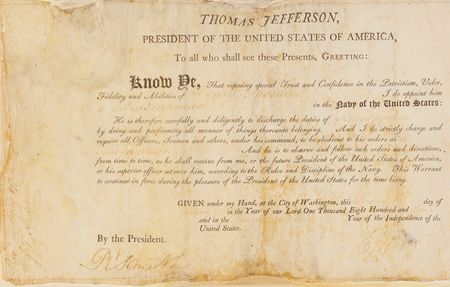 THOMAS JEFFERSON,
PRESIDENT OF THE UNITED STATES OF AMERICA,
To all who shall see these Presents, GREETING:
KNOW YE, That reposing special Trust and Confidence in the Patriotism, Valor,
Fidelity and Abilities of I do appoint him
in the Navy of the United States:
He is therefore carefully and diligently to discharge the duties of
by doing and performing all manner of things thereunto belonging. And I do strictly charge and
require all Officers, Seamen and others, under his command, to be obedient to his orders as
And he is to observe and follow such orders and directions,
from time to time, as he shall receive from me, or the future President of the United States of America,
or his superior officer set over him, according to the Rules and Discipline of the Navy. This Warrant
to continue in force during the pleasure of the President of the United States for the time being.
GIVEN under my Hand, at the City of Washington, this day of
in the Year of our Lord One Thousand Eight Hundred and
and in the Year of the Independence of the
United States.
By the President.